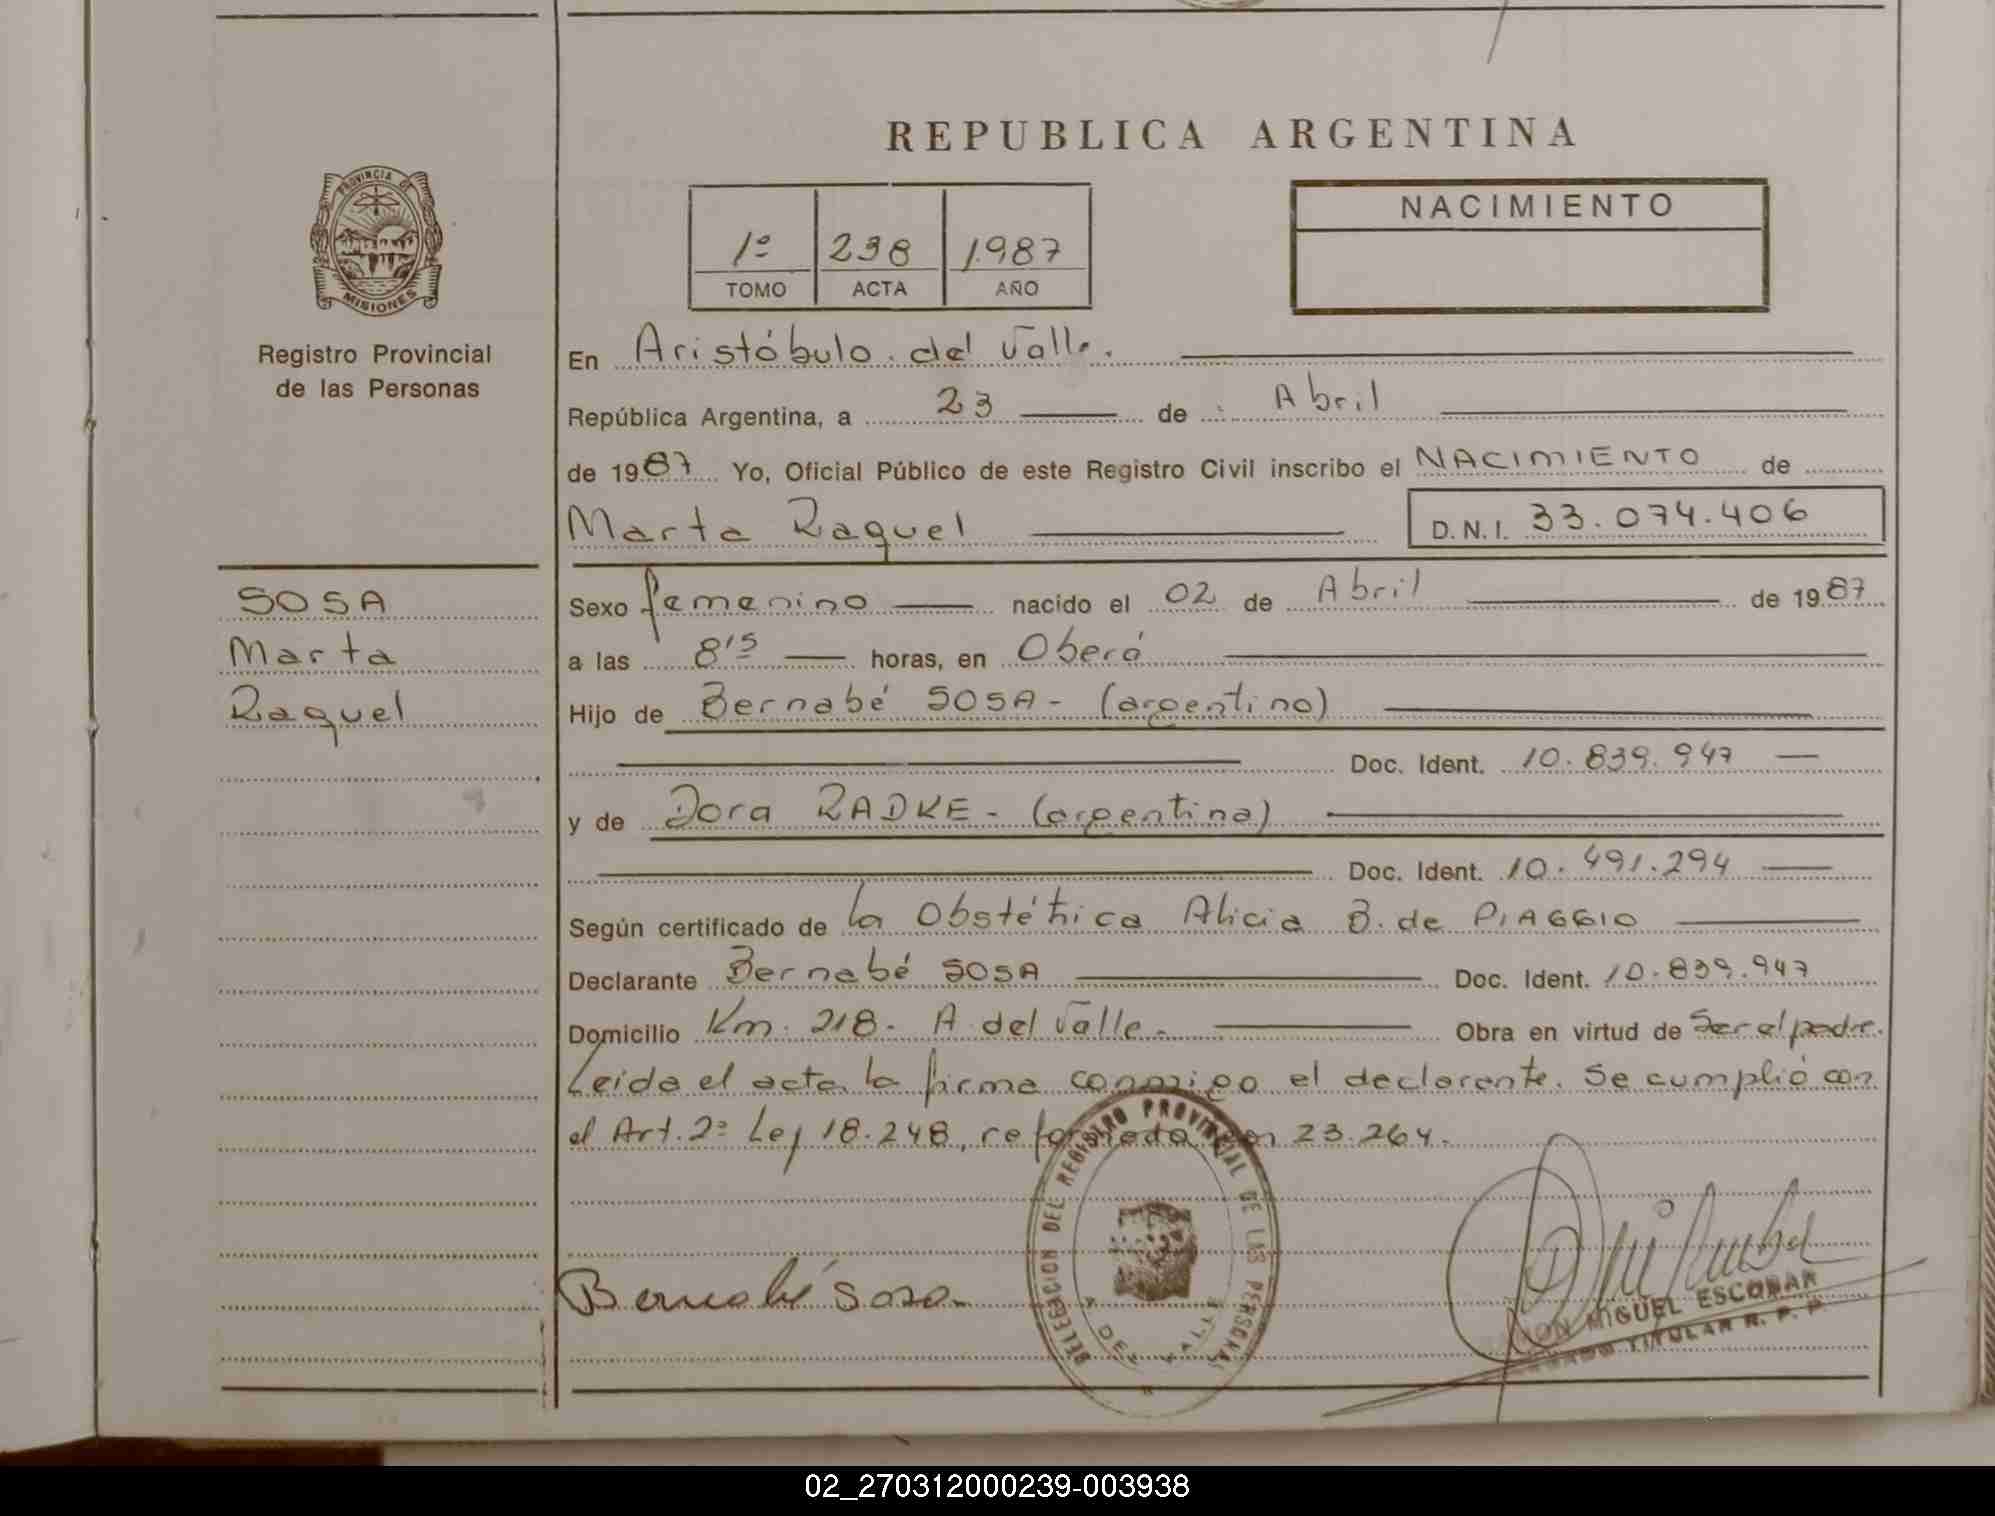 REPUBLICA ARGENTINA
PROVINCIA DE
MISIONES
Registro Provincial
de las Personas
1º 238 1987
TOMO ACTA AÑO
NACIMIENTO
En Aristóbulo del Valle.
República Argentina, a 23 de Abril
de 1987 Yo, Oficial Público de este Registro Civil inscribo el NACIMIENTO de
Marta Raquel D.N.I. 33.074.406
SOSA
Marta
Raquel
Sexo femenino nacido el 02 de Abril de 1987
a las 8'15 horas, en Oberá
Hijo de Bernabé SOSA - (argentino)
Doc. Ident. 10.839.947
y de Dora RADKE - (argentina)
Doc. Ident. 10.491.294
Según certificado de la Obstétrica Alicia B. de PIAGGIO
Declarante Bernabé SOSA Doc. Ident. 10.839.947
Domicilio Km. 218- A. del Valle.- Obra en virtud de Ser el padre.
Leida el acta la firma conmigo el declarante. Se cumplió con
el Art. 2º Ley 18.248, reformada en 23.264.
DELEGACION DEL REGISTRO PROVINCIAL DE LAS PERSONAS
A. DEL VALLE
Bernabé Sosa
MIGUEL ESCOBAR
TITULAR R. P. P.
02_270312000239-003938